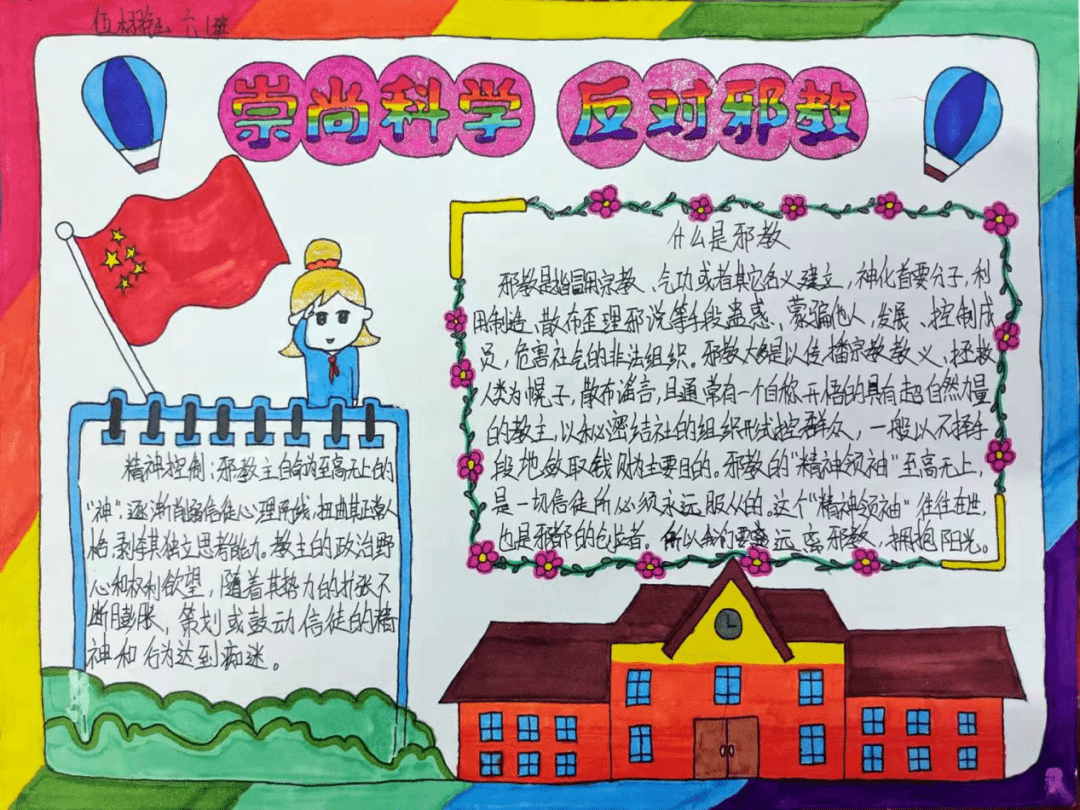 伍栩钰 六1班
崇尚科学 反对邪教
什么是邪教
邪教是指冒用宗教、气功或者其它名义建立，神化首要分子，利
用制造、散布歪理邪说等手段蛊惑、蒙骗他人，发展、控制成
员，危害社会的非法组织。邪教大多是以传播宗教教义、拯救
人类为幌子，散布谣言，且通常有一个自称开悟的具有超自然力量
的教主，以秘密结社的组织形式控群众，一般以不择手
段地敛取钱财为主要目的。邪教的"精神领袖"至高无上，
是一切信徒所必须永远服从的。这个"精神领袖"往往在世，
也是邪部的创长者。所以我们要远离邪教，拥抱阳光。
精神控制：邪教主自称为至高无上的
"神"，逐渐削弱信徒心理防线，扭曲其正常人
格，剥夺其独立思考能力。教主的政治野
心和权利欲望，随着其势力的扩张不
断膨胀，策划或鼓动信徒的精
神和行为达到痴迷。